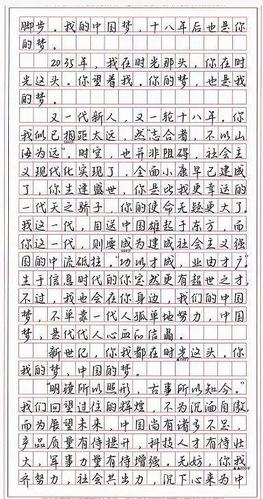 脚步，我的中国梦，十八年后也是你
的梦。
2035年，我在时光那头，你在时
光这头。你望着我，你的梦，也是我
的梦。
又一代新人，又一轮十八年，你
我似已相距太远，然“志合者，不以山
海为远”。时空，也并非阻碍。社会主
义现代化实现了，全面小康早已建成
了，你生逢盛世，你是比我更幸运的
一代天之骄子，你的使命无疑更大了。
我这一代，目送中国雄起于东方，而
你这一代，则要成为建成社会主义强
国的中流砥柱。“功以才成，业由才广”
生于信息时代的你突然更有超世之才，
不过，我也会在你身边，我们的中国
梦，不单靠一代人孤单地努力，中国
梦，是代代人心血的结晶。
新世纪，你我都在时光这头，你
我的梦，中国的梦。
“明镜所以照形，古事所以知今。”
我们回望过往的辉煌，不为沉湎自傲，
而为展望未来，中国尚有诸多不足，
产品质量有待提升，科技人才有待壮
大，军事力量有待增强。无妨，你我
齐努力，社会共出力，沉下心来为中